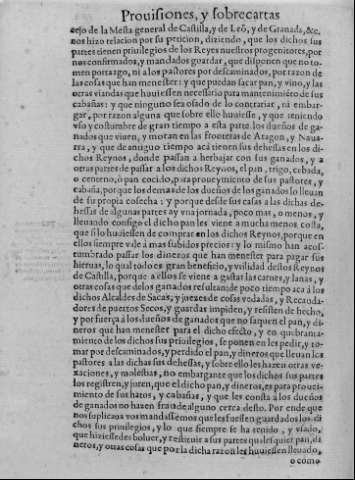 Prouisiones, y sobrecartas
cejo de la Mesta general de Castilla, y de Leõ, y de Granada, &c.
nos hizo relacion por su peticion, diziendo, que los dichos sus
partes tienen priuilegios de los Reyes nuestros progenitores, por
nos confirmados, y mandados guardar, que disponen que no to-
men portazgo, ni a los pastores por descaminados, por razon de
las cosas que han menester: y que puedan sacar pan, y vino, y las
otras viandas que huuiessen necessario para mantenimiẽto de sus
cabañas: y que ninguno sea osado de lo contrariar, ni embar-
gar, por razon alguna que sobre ello huuiesse, y que teniendo
vso y costumbre de gran tiempo a esta parte los dueños de ga-
nados que viuen, y moran en las fronteras de Aragon, y Naua-
rra, y que de antiguo tiempo acá tienen sus dehessas en los di-
chos Reynos, donde passan a herbajar con sus ganados, y a
otras partes de passar a los dichos Reynos, el pan, trigo, cebada,
o centeno, ò pan cocido, para proueymiento de sus pastores, y
cabaña, porque los demas de los dueños de los ganados lo lleuan
de su propia cosecha: y porque desde sus casas a las dichas de-
hessas de algunas partes ay vna jornada, poco mas, o menos, y
lleuando consigo el dicho pan les viene a mucha menos costa,
que si lo huuiessen de comprar en los dichos Reynos, porque en
ellos siempre vale à mas subidos precios: y lo mismo han acos-
tumbrado passar los dineros que han menester para pagar sus
hieruas, lo qual todo es gran beneficio, y vtilidad destos Reynos
de Castilla, porque a ellos se viene a gastar las carnes, y lanas, y
otras cosas que de los ganados resultan: de poco tiempo acà los
dichos Alcaldes de Sacas, y juezes de cosas vedadas, y Recauda-
dores de puertos Secos, y guardas impiden, y resisten de hecho,
y por fuerça à los dueños de ganados que no saquen el pan, y di-
neros que han menester para el dicho efecto, y en quebranta-
miento de los dichos sus priuilegios, se ponen en les pedir, y to-
mar por descaminados, y perdido el pan, y dineros que lleuan los
pastores a las dichas sus dehessas, y sobre ello les hazen otras ve-
xaciones, y molestias, no embargante que los dichos sus partes
los registren, y juren, que el dicho pan, y dineros, es para proui-
miento de sus hatos, y cabañas, y que les consta à los dueños
de ganados no hazen fraude alguno cerca desto. Por ende que
nos suplicaua vos mandassemos que les fuessen guardados los di-
chos sus priuilegios, y lo que siempre se ha tenido, y vsado,
que hiziessedes boluer, y restituir a sus partes qualesquier pan, di
neros, y otras cosas que por la dicha razon les huuiessen lleuado,
o cómo